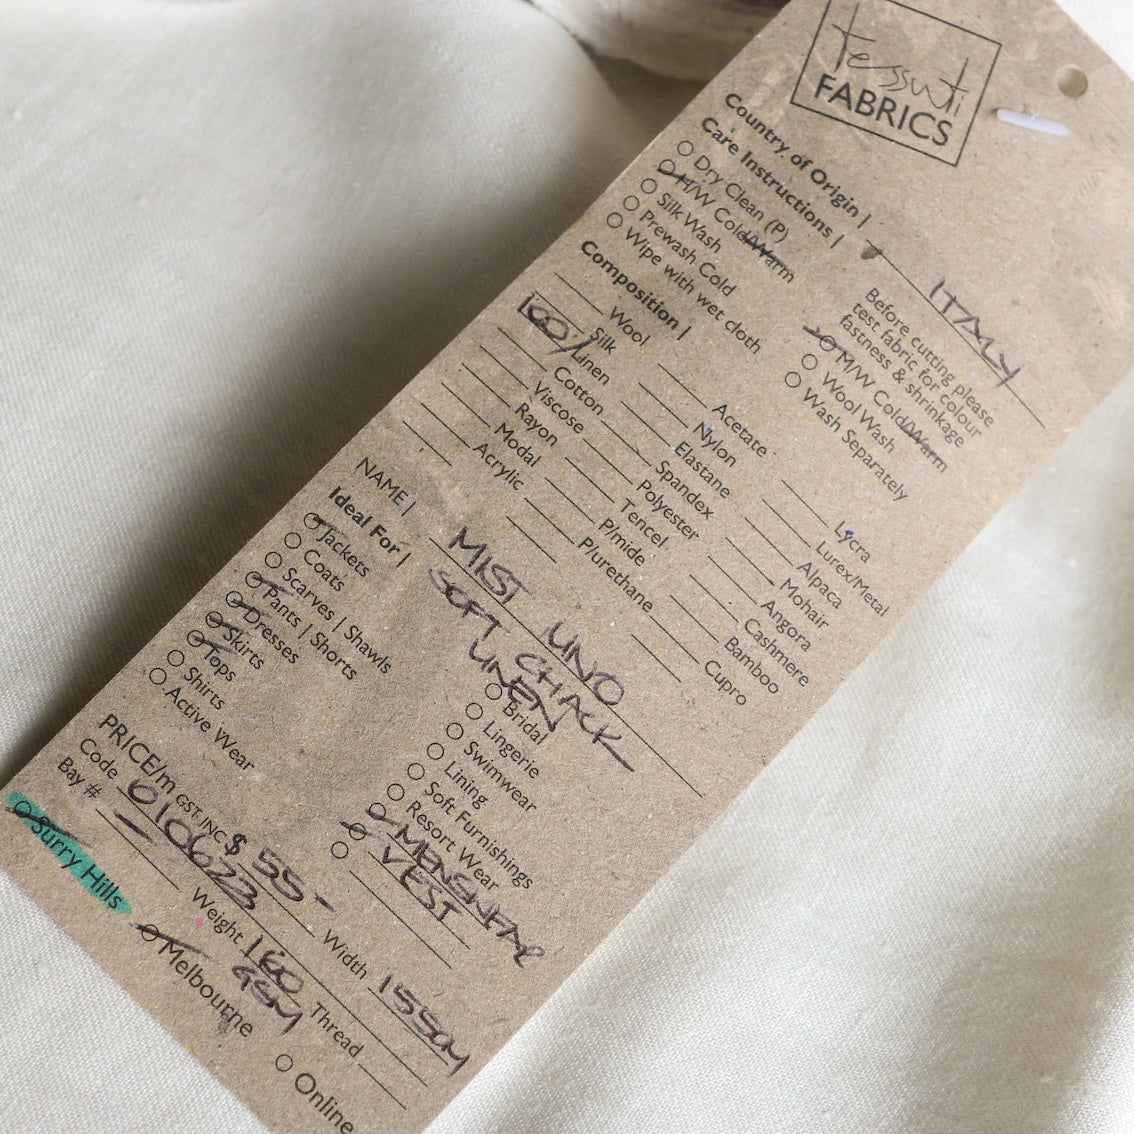 tessuti
FABRICS
Country of Origin | ITALY
Care Instructions |
Before cutting please
test fabric for colour
fastness & shrinkage
Dry Clean (P)
H/W Cold/Warm
Silk Wash
Prewash Cold
Wipe with wet cloth
M/W Cold/Warm
Wool Wash
Wash Separately
Composition |
Wool
Silk
100% Linen
Cotton
Viscose
Rayon
Modal
Acrylic
Acetate
Nylon
Elastane
Spandex
Polyester
Tencel
P/mide
P/urethane
Lycra
Lurex/Metal
Alpaca
Mohair
Angora
Cashmere
Bamboo
Cupro
NAME | MIST UNO
SOFT CHACK
LINEN
Ideal For |
Jackets
Coats
Scarves | Shawls
Pants | Shorts
Dresses
Skirts
Tops
Shirts
Active Wear
Bridal
Lingerie
Swimwear
Lining
Soft Furnishings
Resort Wear
MENSWEAR
VEST
PRICE/m GST. INC $ 55 -
Width 155CM
Code 010623
Weight 160
GSM
Thread
Bay # —
Surry Hills
Melbourne
Online